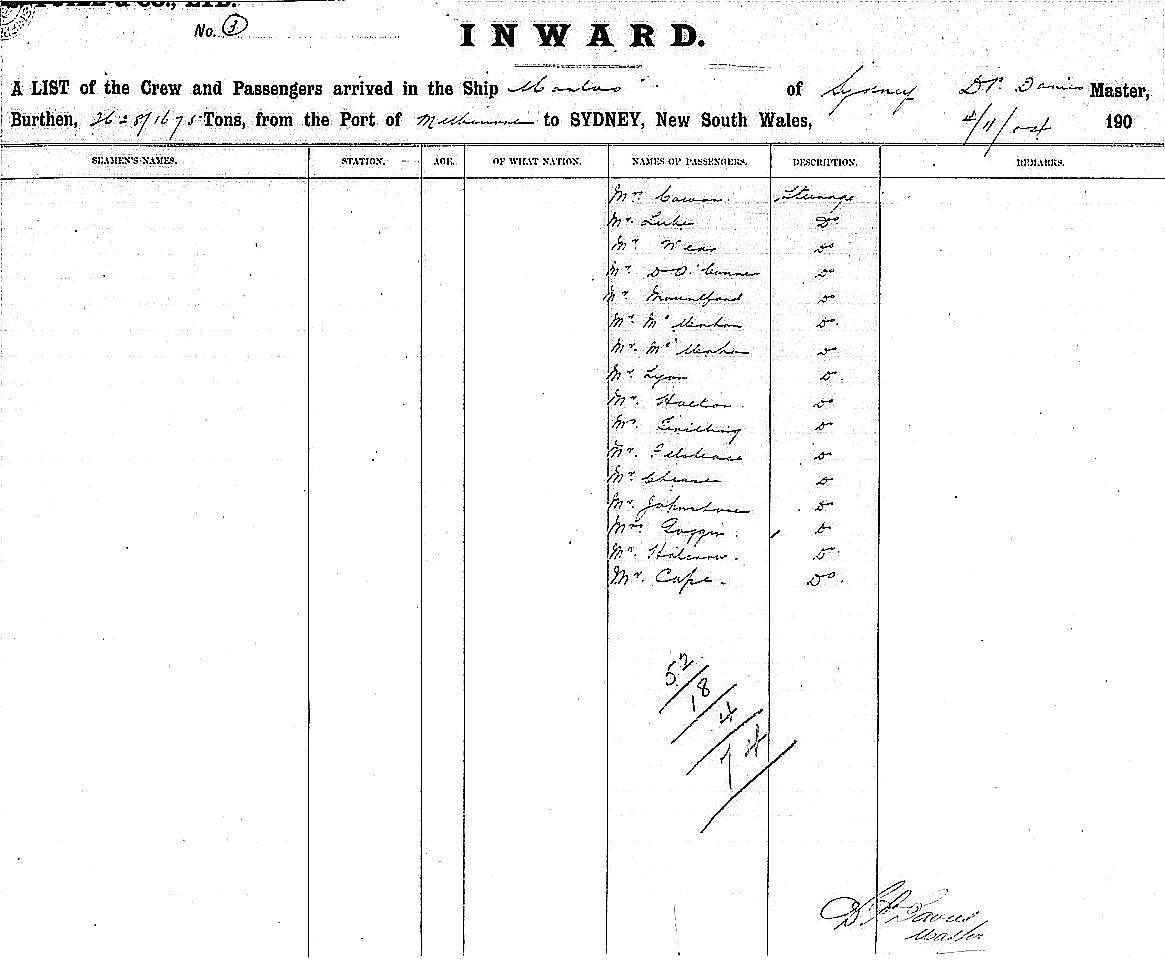 & CO., LTD.
No. 3
INWARD.
A LIST of the Crew and Passengers arrived in the Ship of Sydney D. P. Davies Master,
Burthen, 2628/1675 Tons, from the Port of Melbourne to SYDNEY, New South Wales, 4/11/04 190
SEAMEN'S NAMES. STATION. AGE. OF WHAT NATION. NAMES OF PASSENGERS. DESCRIPTION. REMARKS.
Mr. Cowan Steerage
Mr. Luke Do
Mr. Wear Do
Mr. D O'Connor Do
Mr. Mountford Do
Mr. Mc Do
Mr. Mc Do
Mr. Lyon Do
Mr. Do
Mr. Do
Mr. Do
Mr. Do
Mr. Johnstone Do
Mrs. Goggin Do
Mr. Halcrow. Do
Mr. Cape. Do.
52/
18/
4/
74
D. P. Davies
Master